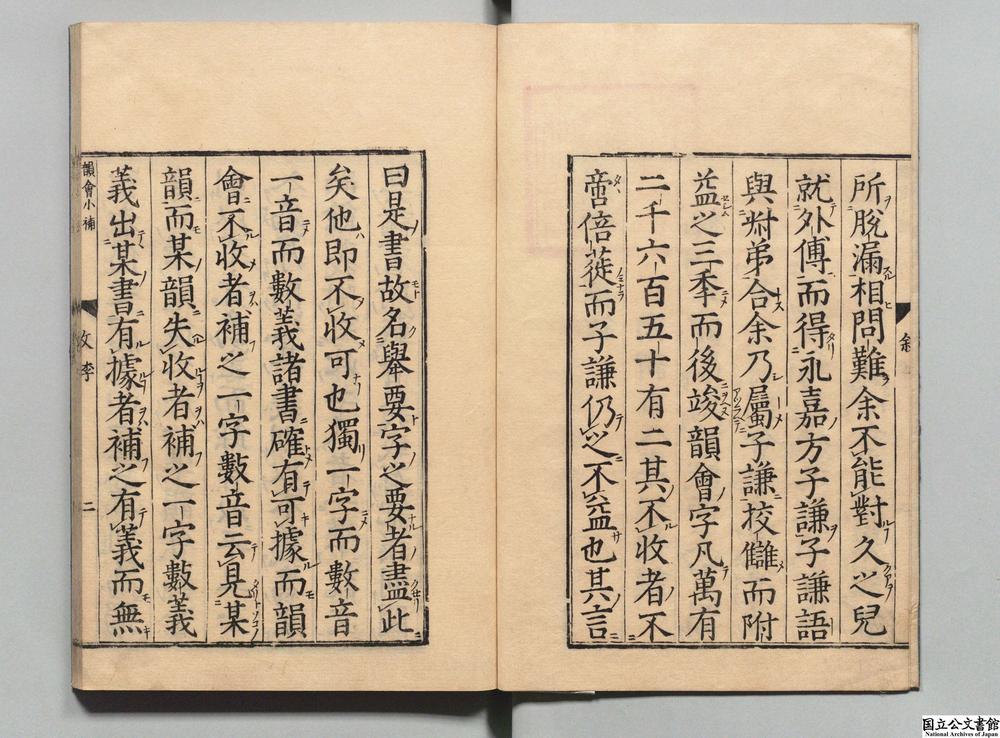 所脫漏相問難余不能對久之兒
就外傅而得永嘉方子謙子謙語
與對弟合余乃屬子謙挍讎而附
益之三秊而後竣韻會字凡萬有
二千六百五十有二其不收者不
啻倍蓰而子謙仍之不益也其言
曰是書故名舉要字之要者盡此
矣他即不收可也獨一字而數音
一音而數義諸書確有可據而韻
會不收者補之一字數音云見某
韻而某韻失收者補之一字數義
義出某書有據者補之有義而無
韻會小補
二
国立公文書館
National Archives of Japan